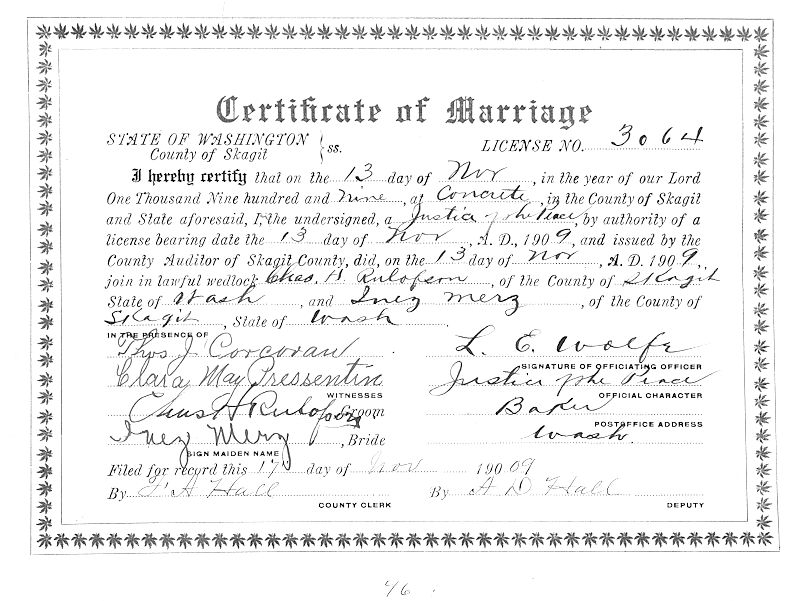 Certificate of Marriage
STATE OF WASHINGTON
County of Skagit
ss.
LICENSE NO. 3064
I hereby certify that on the 13 day of Nov, in the year of our Lord
One Thousand Nine hundred and nine, at Concrete, in the County of Skagit
and State aforesaid, I, the undersigned, a Justice of the Peace, by authority of a
license bearing date the 13 day of Nov, A. D., 1909, and issued by the
County Auditor of Skagit County, did, on the 13 day of Nov, A. D. 1909,
join in lawful wedlock Chas. H. Rulofson, of the County of Skagit
State of Wash, and Inez Merz, of the County of
Skagit, State of Wash
IN THE PRESENCE OF
Thos J Corcoran
L. E. Wolfe
SIGNATURE OF OFFICIATING OFFICER
Clara May Pressentin
Justice of the Peace
WITNESSES
OFFICIAL CHARACTER
Chas H Rulofson Groom
Baker
POSTOFFICE ADDRESS
Inez Merz, Bride
Wash.
SIGN MAIDEN NAME
Filed for record this 17 day of Nov 190 09
By F A Hall
By A D Hall
COUNTY CLERK
DEPUTY
46